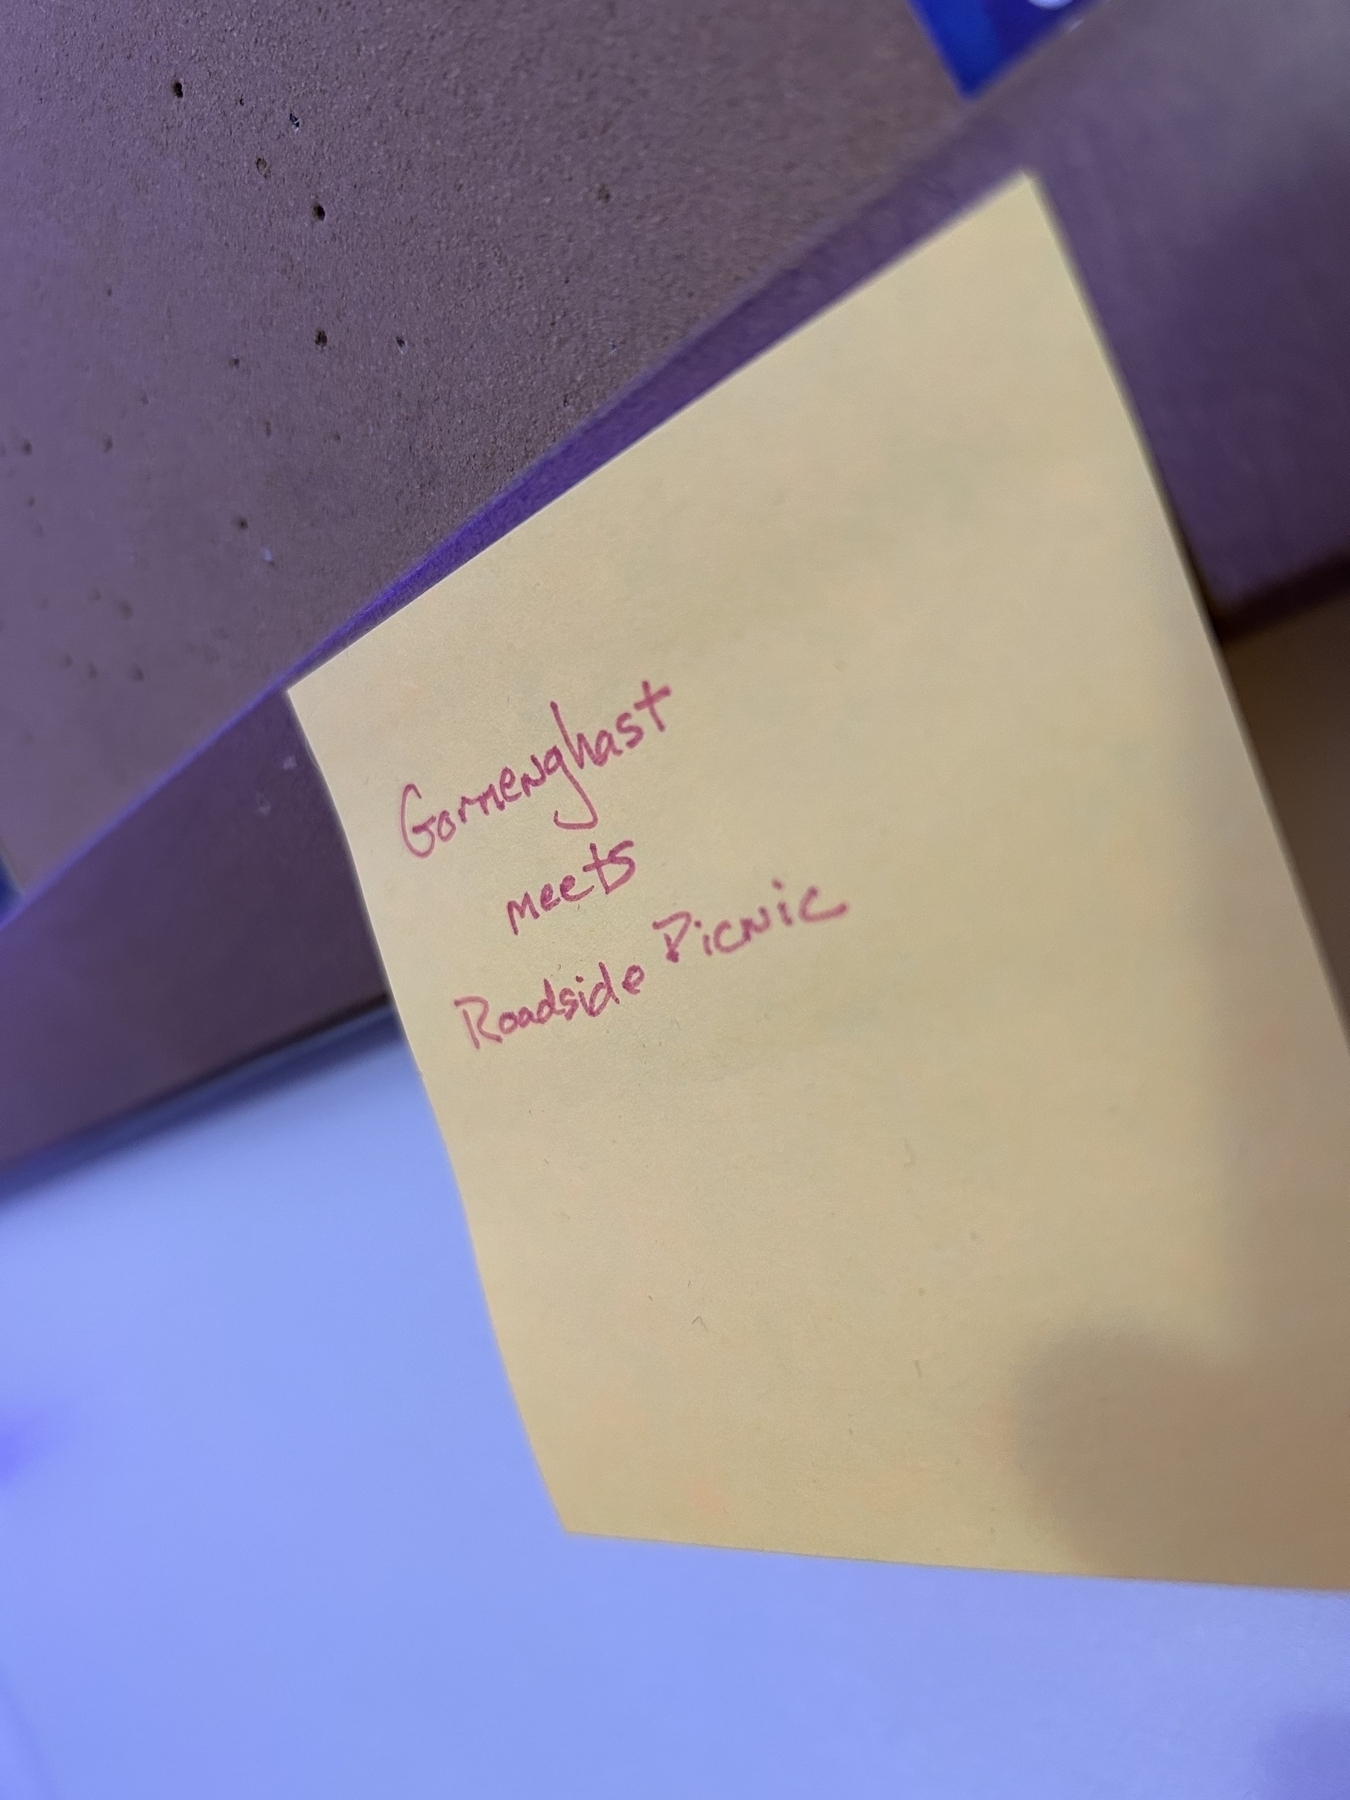 Gormenghast
meets
Roadside Picnic